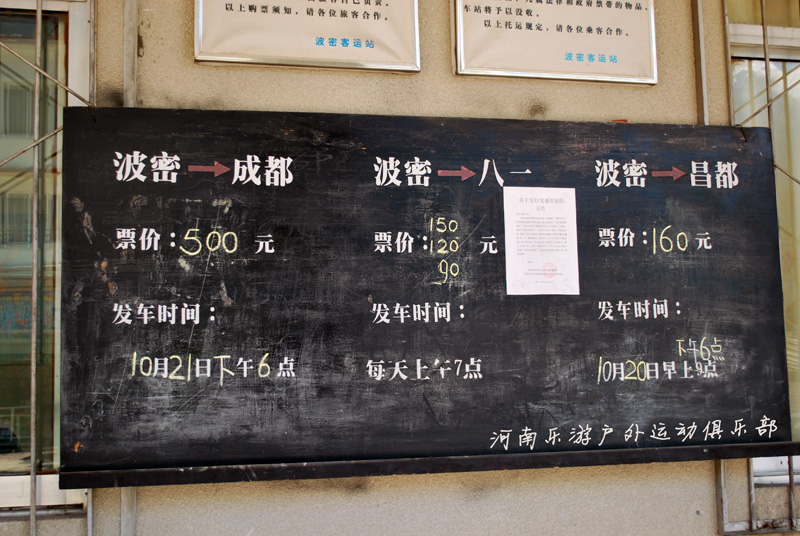 以上购票须知，请各位旅客合作。
波密客运站
车站将予以没收。
以上托运规定，请各位乘客合作。
波密客运站
波密→成都
票价：500 元
发车时间：
10月21日下午6点
波密→八一
票价：150
120 元
90
发车时间：
每天上午7点
波密→昌都
票价：160 元
发车时间：
下午6点
10月20日早上9点
河南乐游户外运动俱乐部